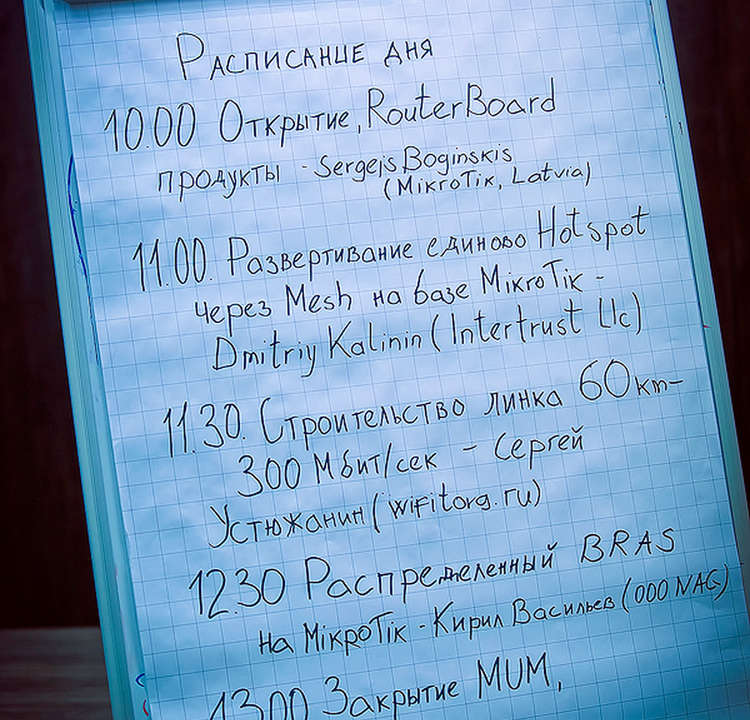 Расписание дня
10.00 Открытие, RouterBoard
продукты - Sergejs Boginskis
(MikroTik, Latvia)
11.00. Развертивание единово Hotspot
через Mesh на базе MikroTik -
Dmitriy Kalinin (Intertrust Llc)
11.30. Строительство линка 60km-
300 Мбит/сек - Сергей
Устюжанин (wifitorg.ru)
12.30 Распределенный BRAS
на МікроТік - Кирил Васильев (ООО NAG)
13.00 Закрытие MUM,